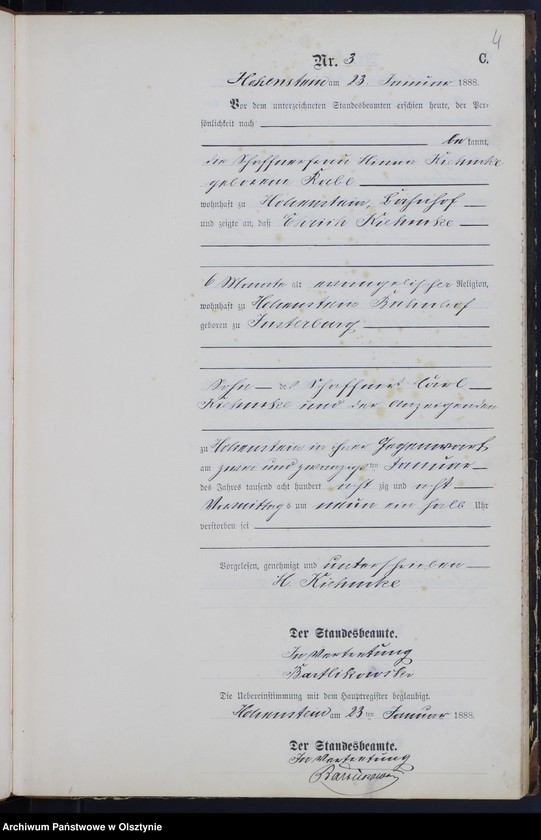 4
Nr. 3 C.
Hohenstein am 23. Januar 1888.
Vor dem unterzeichneten Standesbeamten erschien heute, der Per-
sönlichkeit nach
bekannt,
die Schaffnerfrau Henna Kiehmke
geborene Rabe
wohnhaft zu Hohenstein, Bahnhof
und zeigte an, daß Erich Kiehmke
6 Monate alt evangelischer Religion,
wohnhaft zu Hohenstein Bahnhof
geboren zu Insterburg
Sohn des Schaffners Carl
Kiehmke und der Anzeigenden
zu Hohenstein in ihrer Gegenwart
am zwei und zwanzigsten Januar
des Jahres tausend acht hundert acht zig und acht
Vormittags um neun ein halb Uhr
verstorben sei
Vorgelesen, genehmigt und unterschrieben
H. Kiehmke
Der Standesbeamte.
In Vertretung
Bartlikowski
Die Uebereinstimmung mit dem Hauptregister beglaubigt.
Hohenstein am 23ten Januar 1888.
Der Standesbeamte.
In Vertretung
Archiwum Państwowe w Olsztynie